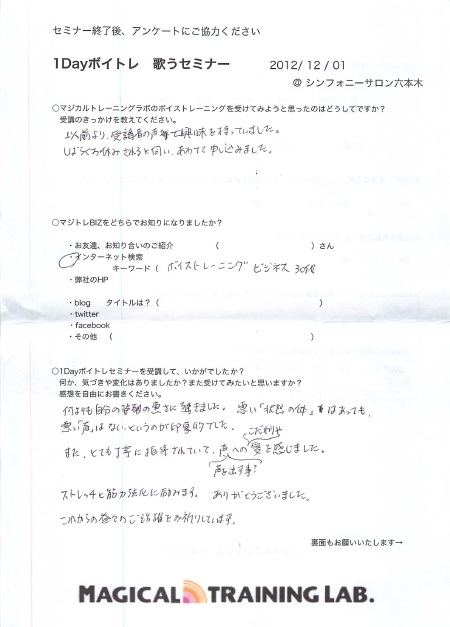 セミナー終了後、アンケートにご協力ください
1Dayボイトレ 歌うセミナー 2012/ 12 / 01
@ シンフォニーサロン六本木
○マジカルトレーニングラボのボイストレーニングを受けてみようと思ったのはどうしてですか?
受講のきっかけを教えてください。
以前より、受講者の声等で興味を持っていました。
しばらくお休みされると伺い、あわてて申し込みました。
○マジトレBIZをどちらでお知りになりましたか?
・お友達、お知り合いのご紹介 ( )さん
・インターネット検索
キーワード ( ボイストレーニング ビジネス 30代
・弊社のHP
・blog タイトルは?( )
・twitter
・facebook
・その他 ( )
○1Dayボイトレセミナーを受講して、いかがでしたか?
何か、気づきや変化はありましたか?また受けてみたいと思いますか?
感想を自由にお書きください。
何よりも自分の姿勢の悪さに驚きました。悪い「状態の体」はあっても、
悪い「声」はないというのが印象的でした。
こだわりや
また、とても丁寧に指導されていて、声への愛を感じました。
声を出す事?
ストレッチと筋力強化に励みます。 ありがとうございました。
これからの益々のご活躍をお祈りしています。
裏面もお願いいたします→
MAGICAL TRAINING LAB.